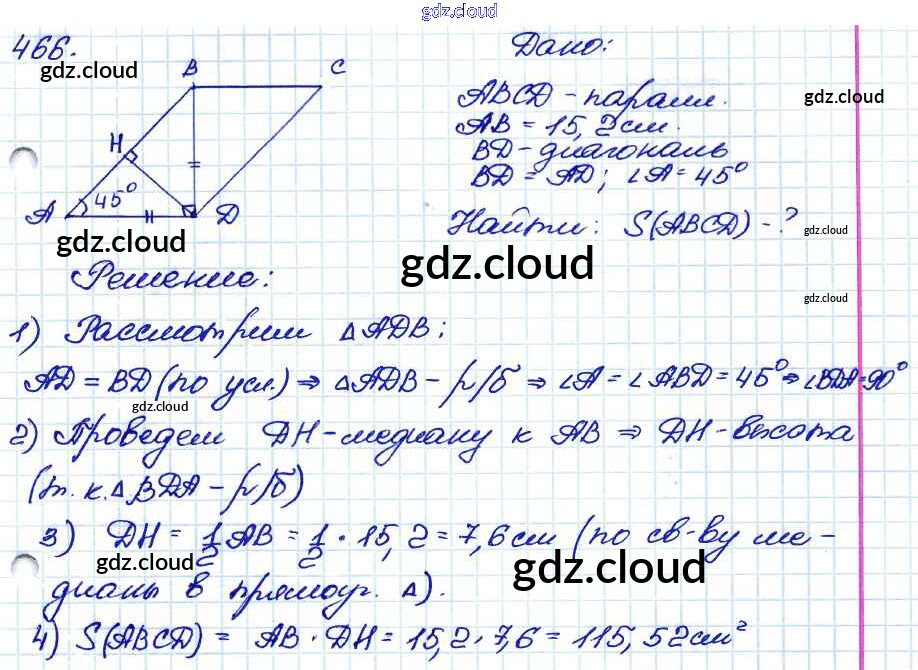 gdz.cloud
466.
gdz.cloud
B
C
H
45°
A
D
gdz.cloud
Дано:
ABCD - паралл.
gdz.cloud
AB = 15,2 см.
BD - диагональ
BD = AD; ∠A = 45°
Найти: S(ABCD) - ?
gdz.cloud
gdz.cloud
Решение:
gdz.cloud
1) Рассмотрим △ADB:
AD = BD (по усл.) ⇒ △ADB - р/б ⇒ ∠A = ∠ABD = 45° ⇒ ∠BDA = 90°
gdz.cloud
2) Проведем DH - медиану к AB ⇒ DH - высота
(т. к. △BDA - р/б)
3) DH = 1/2 AB = 1/2 · 15,2 = 7,6 см (по св-ву ме-
gdz.cloud
gdz.cloud
дианы в прямоуг. △).
4) S(ABCD) = AB · DH = 15,2 · 7,6 = 115,52 см²